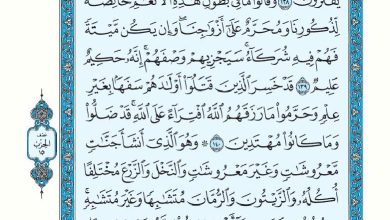 يَفْتَرُونَ ١٣٨ وَقَالُوا۟ مَا فِى بُطُونِ هَـٰذِهِ ٱلْأَنْعَـٰمِ خَالِصَةٌ
لِّذُكُورِنَا وَمُحَرَّمٌ عَلَىٰٓ أَزْوَٰجِنَا ۖ وَإِن يَكُن مَّيْتَةً
فَهُمْ فِيهِ شُرَكَآءُ ۚ سَيَجْزِيهِمْ وَصْفَهُمْ ۚ إِنَّهُۥ حَكِيمٌ
عَلِيمٌ ١٣٩ قَدْ خَسِرَ ٱلَّذِينَ قَتَلُوٓا۟ أَوْلَـٰدَهُمْ سَفَهًۢا بِغَيْرِ
عِلْمٍ وَحَرَّمُوا۟ مَا رَزَقَهُمُ ٱللَّهُ ٱفْتِرَآءً عَلَى ٱللَّهِ ۚ قَدْ ضَلُّوا۟
وَمَا كَانُوا۟ مُهْتَدِينَ ١٤٠ ۞ وَهُوَ ٱلَّذِىٓ أَنشَأَ جَنَّـٰتٍ
مَّعْرُوشَـٰتٍ وَغَيْرَ مَعْرُوشَـٰتٍ وَٱلنَّخْلَ وَٱلزَّرْعَ مُخْتَلِفًا
أُكُلُهُۥ وَٱلزَّيْتُونَ وَٱلرُّمَّانَ مُتَشَـٰبِهًا وَغَيْرَ مُتَشَـٰبِهٍ ۚ